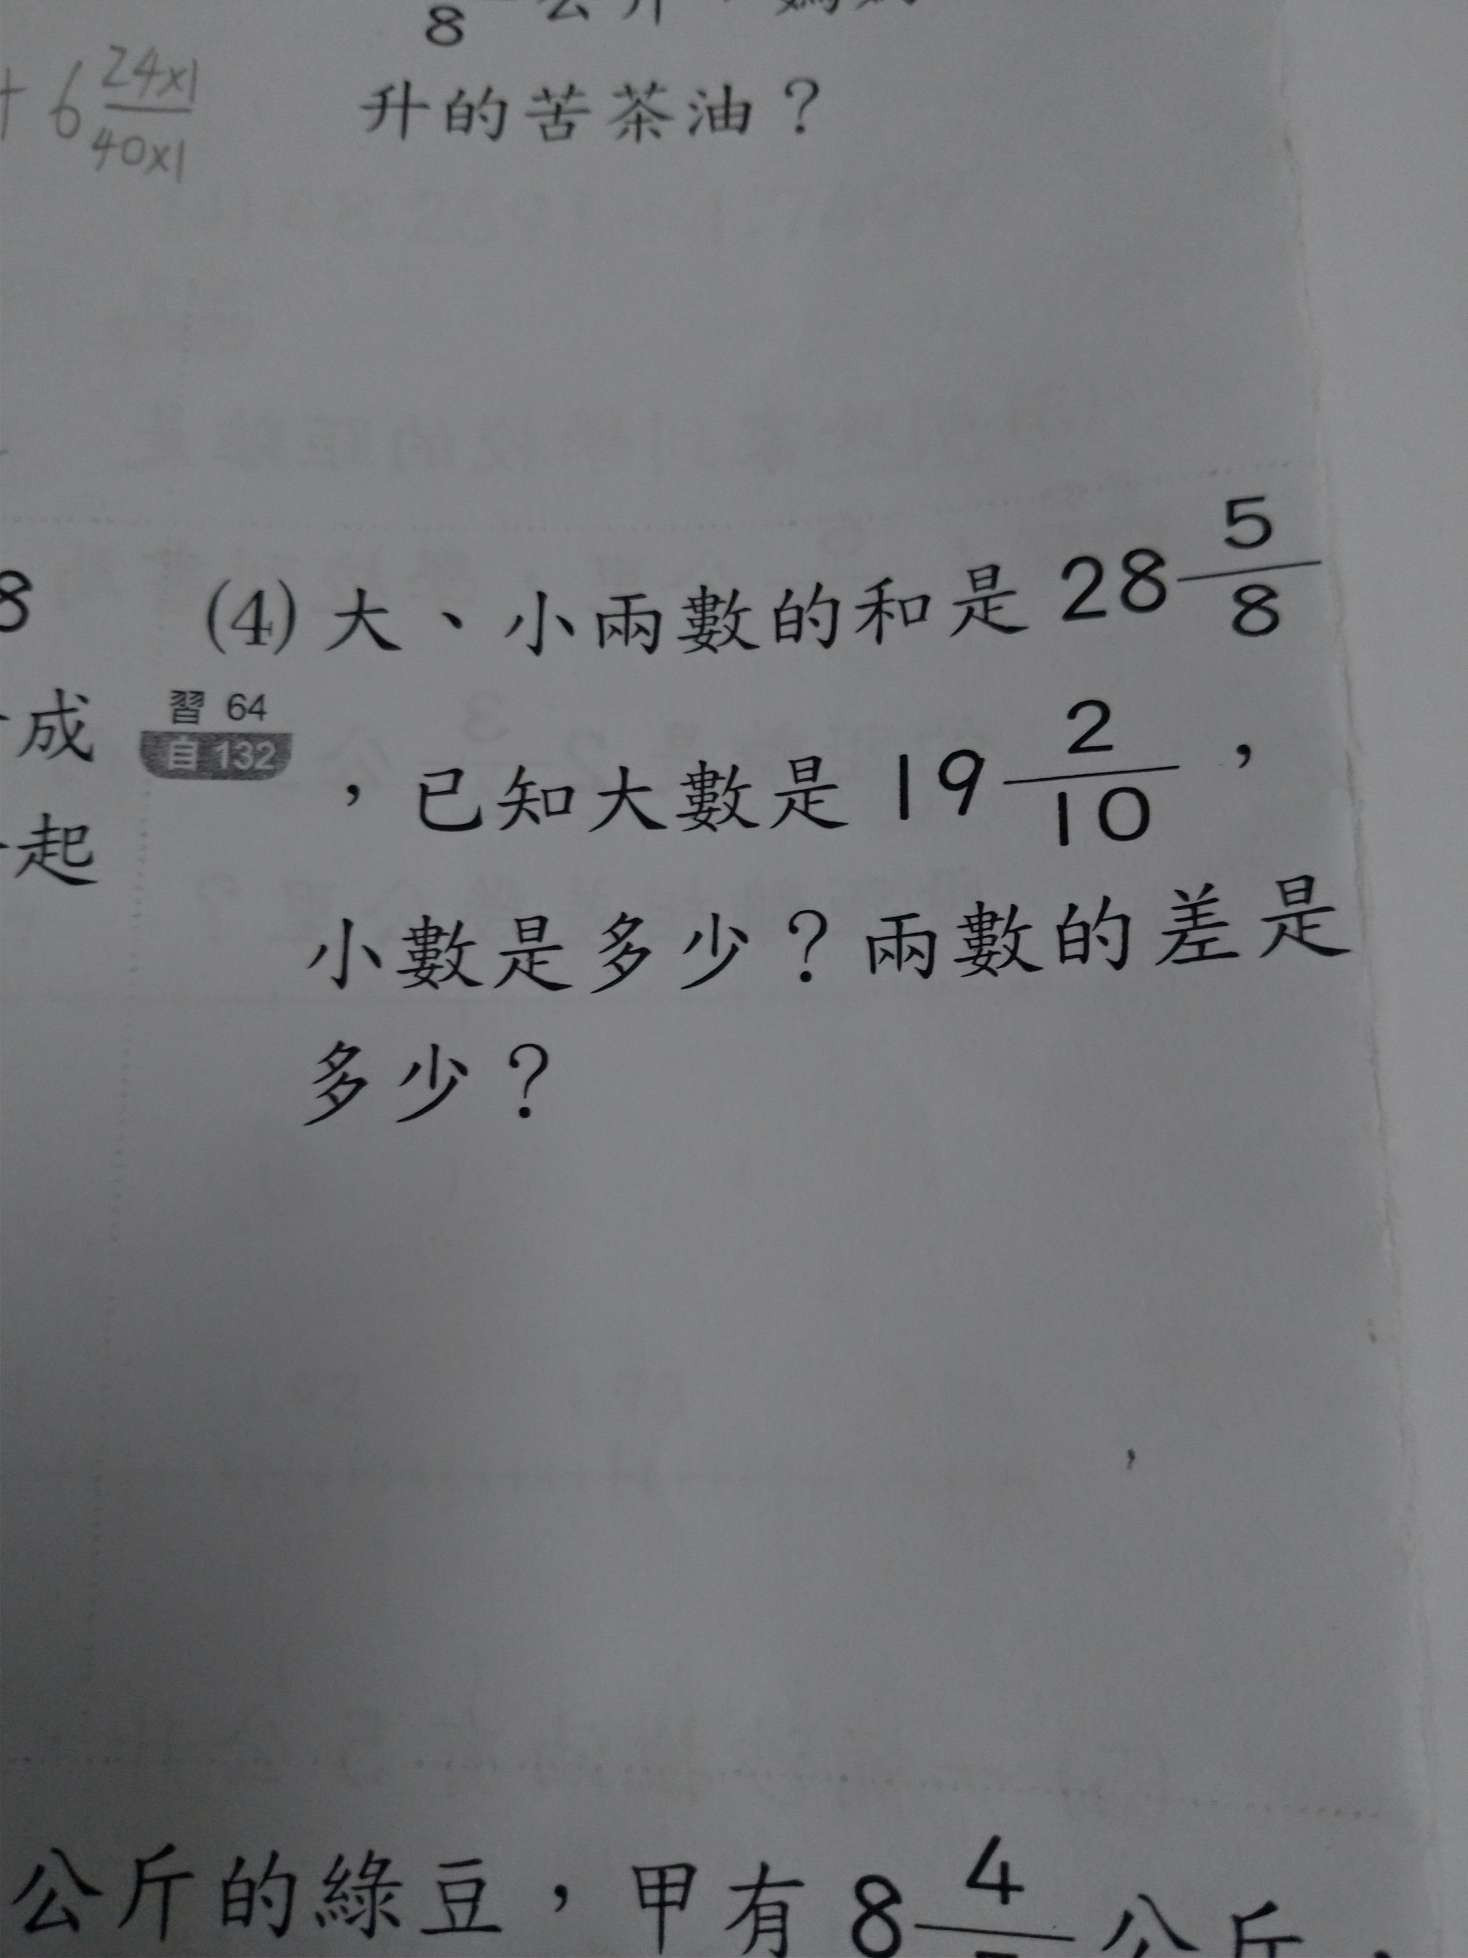 8
+ 6 24x1/40x1
升的苦茶油？
8
(4) 大、小兩數的和是 28 5/8
成
習 64
自 132
，已知大數是 19 2/10，
起
小數是多少？兩數的差是
多少？
公斤的綠豆，甲有 8 4